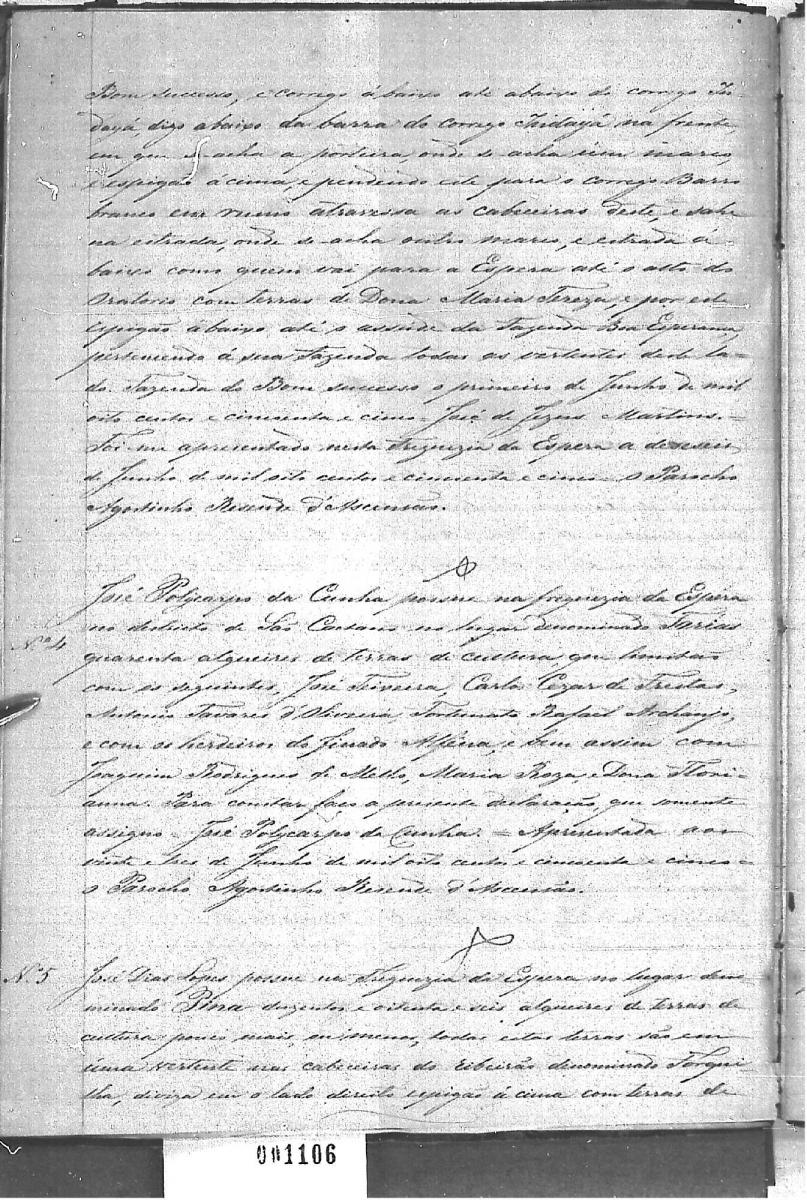 Bom successo, e corrego ábaixo até abaixo do corrego In-
dayá, digo abaixo da barra do corrego Indayá na frente,
em que se acha a porteira, onde se acha um marco,
e espigão ácima, e pendendo este para o corrego Barro
branco em rumo atravessa as cabeceiras deste e sahe
na estrada, onde se acha outro marco, e estrada á-
baixo como quem vai para a Espera até o alto do
Oratorio com terras de Dona Maria Tereza, e por este
espigão ábaixo até o assude da Fazenda Boa Esperança,
pertencendo á sua Fazenda todas as vertentes deste la-
do. Fazenda do Bom successo o primeiro de Junho de mil
oito centos e cincoenta e cinco - José de Jezus Martins. =
Foi me apresentado nesta Freguezia da Espera a deseseis
de Junho de mil oito centos e cincoenta e cinco - O Parocho
Agostinho Resende d'Ascensão.
Nº 4
José Polycarpo da Cunha possue na freguezia da Espera
no districto de São Caetano no lugar denominado Farias
quarenta alqueires de terras de cultura, que limitão
com os seguintes, José Teixeira, Carlos Cezar de Freitas,
Antonio Tavares d'Oliveira, Fortunato Rafael Archanjo,
e com os herdeiros do finado Alfena, e bem assim com
Joaquim Rodrigues de Mello, Maria Roza, e Dona Flori-
anna. Para constar faço a presente declaração, que somente
assigno - José Polycarpo da Cunha. = Apresentada aos
vinte e tres de Junho de mil oito cento e cincoenta e cinco =
O Parocho Agostinho Resende d'Ascensão.
Nº 5
José Dias Lopes possue na Freguezia da Espera no lugar deno-
minado Pina duzentos e oitenta e seis alqueires de terras de
cultura pouco mais, ou menos, todas estas terras são em
uma vertente nas cabeceiras do ribeirão denominado Forqui-
lha, diviza em o lado direito espigão ácima com terras de
001106